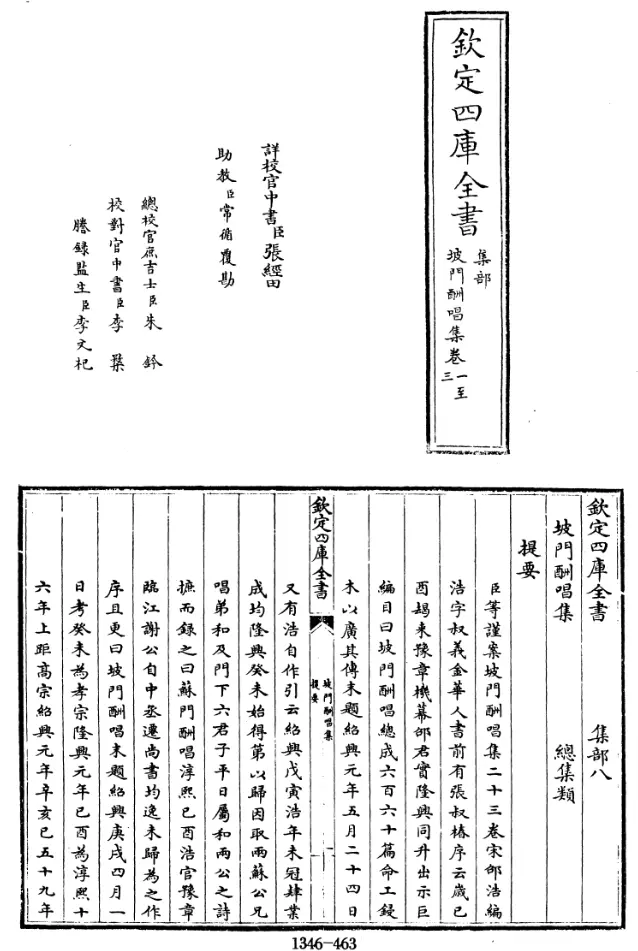 欽定四庫全書
集部
坡門酬唱集卷一至
三
詳校官中書臣張經田
助教臣常循覆勘
總校官庶吉士臣朱鈐
校對官中書臣李 葉
謄錄監生臣李文杞
欽定四庫全書 集部八
坡門酬唱集 總集類
提要
臣等謹案坡門酬唱集二十三卷宋邵浩編
浩字叔義金華人書前有張叔椿序云歲已
酉朅來豫章機幕邵君實隆興同升出示巨
編目曰坡門酬唱總成六百六十篇命工鋟
木以廣其傳末題紹興元年五月二十四日
欽定四庫全書
坡門酬唱集
提要
一
又有浩自作引云紹興戊寅浩年未冠肄業
成均隆興癸未始得第以歸因取兩蘇公兄
唱弟和及門下六君子平日屬和兩公之詩
摭而錄之曰蘇門酬唱淳熙已酉浩官豫章
臨江謝公自中丞遷尚書均逸未歸為之作
序且更曰坡門酬唱末題紹興庚戌四月一
日考癸未為孝宗隆興元年已酉為淳熙十
六年上距高宗紹興元年辛亥已五十九年
1346-463